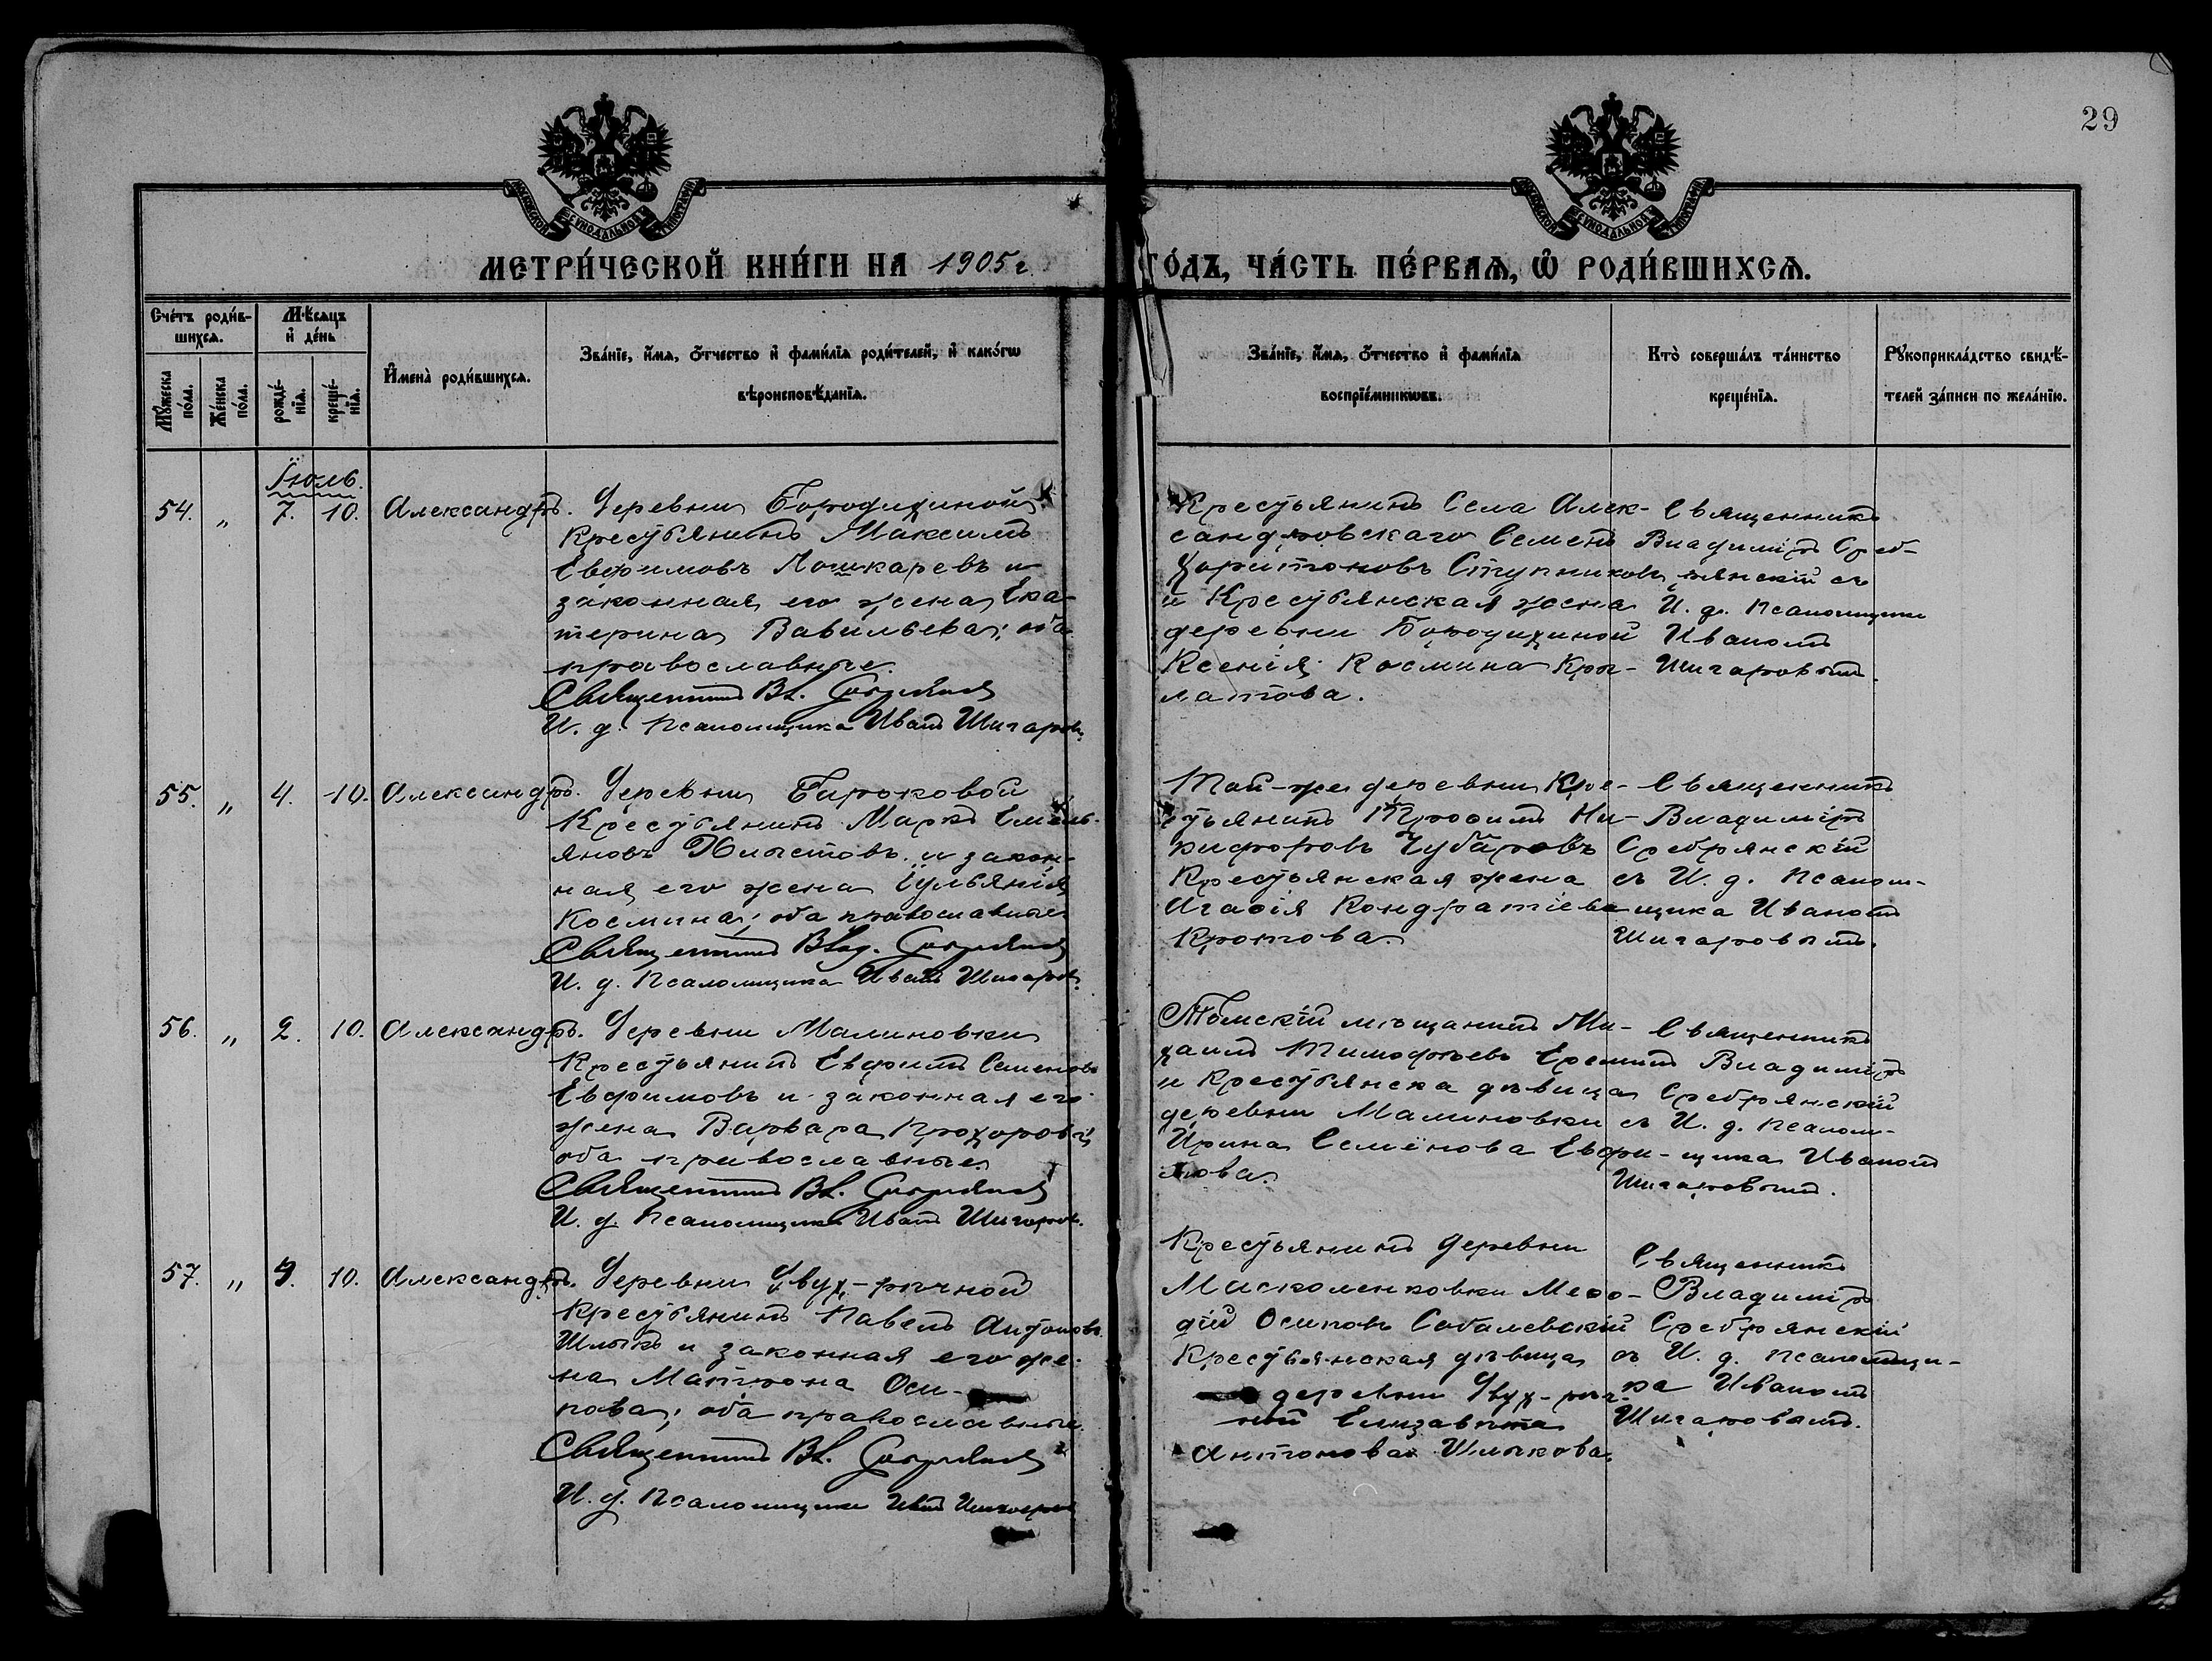 29
МОСКОВСКОЙ СѴНОДАЛЬНОЙ ТИПОГРАФІИ
МОСКОВСКОЙ СѴНОДАЛЬНОЙ ТИПОГРАФІИ
МЕТРИ́ЧЕСКОЙ КНИ́ГИ НА 1905 г. ГО́ДЪ, ЧА́СТЬ ПЕ́РВАѦ, Ѽ РОДИ́ВШИХСѦ.
Сче́тъ роди́в-
шихся.
Мѣ́сяцъ
и҆ де́нь
Мꙋ́жеска
по́ла.
Же́нска
по́ла.
рожде́-
нїя.
креще́-
нїя.
И҆мена̀ роди́вшихся.
Зва́нїе, и҆́мя, ѻ҆́тчество и҆ фами́лїя роди́телей, и҆ како́гѡ
вѣроисповѣ́данїя.
Зва́нїе, и҆́мя, ѻ҆́тчество и҆ фами́лїя
воспрїе́мникѡвъ.
Кто̀ соверша́лъ та́инство
креще́нїя.
Рꙋкоприкла́дство свидѣ́-
телей за́писи по жела́нїю.
Іюль.
54. „ 7. 10. Александръ.
Деревни Бородихиной
Крестьянинъ Максимъ
Евфимовъ Лошкаревъ и
законная его жена Ека-
терина Вавильева; оба
православные.
Священникъ Вл. Сребрянскій
И. д. Псаломщика Иванъ Шигаровъ
Крестьянинъ Села Алек-
сандровскаго Семенъ
Харитоновъ Ступниковъ
и Крестьянская жена
деревни Бородихиной
Ксенія Космина Кры-
латова.
Священникъ
Владиміръ Среб-
рянскій съ
И. д. Псаломщика
Иваномъ
Шигаровымъ.
55. „ 4. 10. Александръ.
Деревни Бироковой
Крестьянинъ Маркъ Емель-
яновъ Хлыстовъ и закон-
ная его жена Іульянія
Космина; оба православные
Священникъ Влад. Сребрянскій
И. д. Псаломщика Иванъ Шигаровъ.
Той-же деревни Кре-
стьянинъ Трофимъ Ни-
кифоровъ Чубаровъ
Крестьянская жена
Агафія Кондратіева
Кротова.
Священникъ
Владиміръ
Сребрянскій
съ И. д. Псалом-
щика Иваномъ
Шигаровымъ.
56. „ 2. 10. Александръ.
Деревни Малиновки
Крестьянинъ Евфимъ Семеновъ
Евфимовъ и законная его
жена Варвара Прохорова
оба православные.
Священникъ Вл. Сребрянскій
И. д. Псаломщика Иванъ Шигаровъ.
Томскій мѣщанинъ Ми-
хаилъ Тимофѣевъ Ереминъ
и Крестьянска дѣвица
деревни Малиновки
Ирина Семёнова Евфи-
мова.
Священникъ
Владиміръ
Сребрянскій
съ И. д. Псалом-
щика Иваномъ
Шигаровымъ.
57. „ 9. 10. Александръ.
Деревни Двух-рѣчной
Крестьянинъ Павелъ Антоновъ
Шлыкъ и законная его же-
на Матрона Оси-
пова; оба православные.
Священникъ Вл. Сребрянскій
И. д. Псаломщика Иванъ Шигаровъ
Крестьянинъ деревни
Мефо-
дій Осиповъ Собалевскій
Крестьянская дѣвица
деревни Двух-рѣч-
ной Елизавета
Антонова Шлыкова.
Священникъ
Владиміръ
Сребрянскій
съ И. д. Псаломщи-
ка Иваномъ
Шигаровымъ.